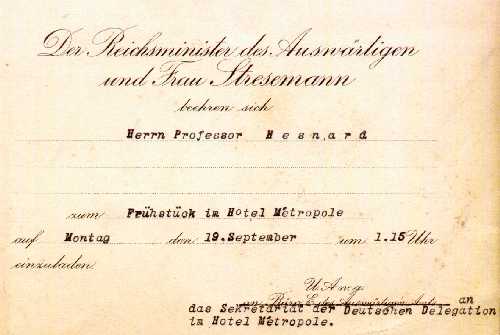 Der Reichsminister des Auswärtigen
und Frau Stresemann
beehren sich
Herrn Professor Hesnard
zum Frühstück im Hotel Métropole
auf Montag den 19. September um 1.15 Uhr
einzuladen
U.A.w.g.
an Büro E. des Auswärtigen Amts an
das Sekretariat der Deutschen Delegation
im Hotel Métropole.